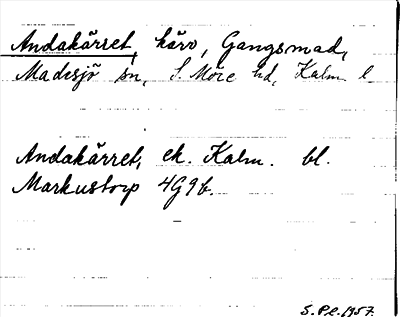 Andakärret, kärr, Gangsmad,
Madesjö sn, S. Möre hd, Kalm. l.
Andakärret, ek. Kalm. bl.
Markustorp 4G9b.
S. Pl. 1957.